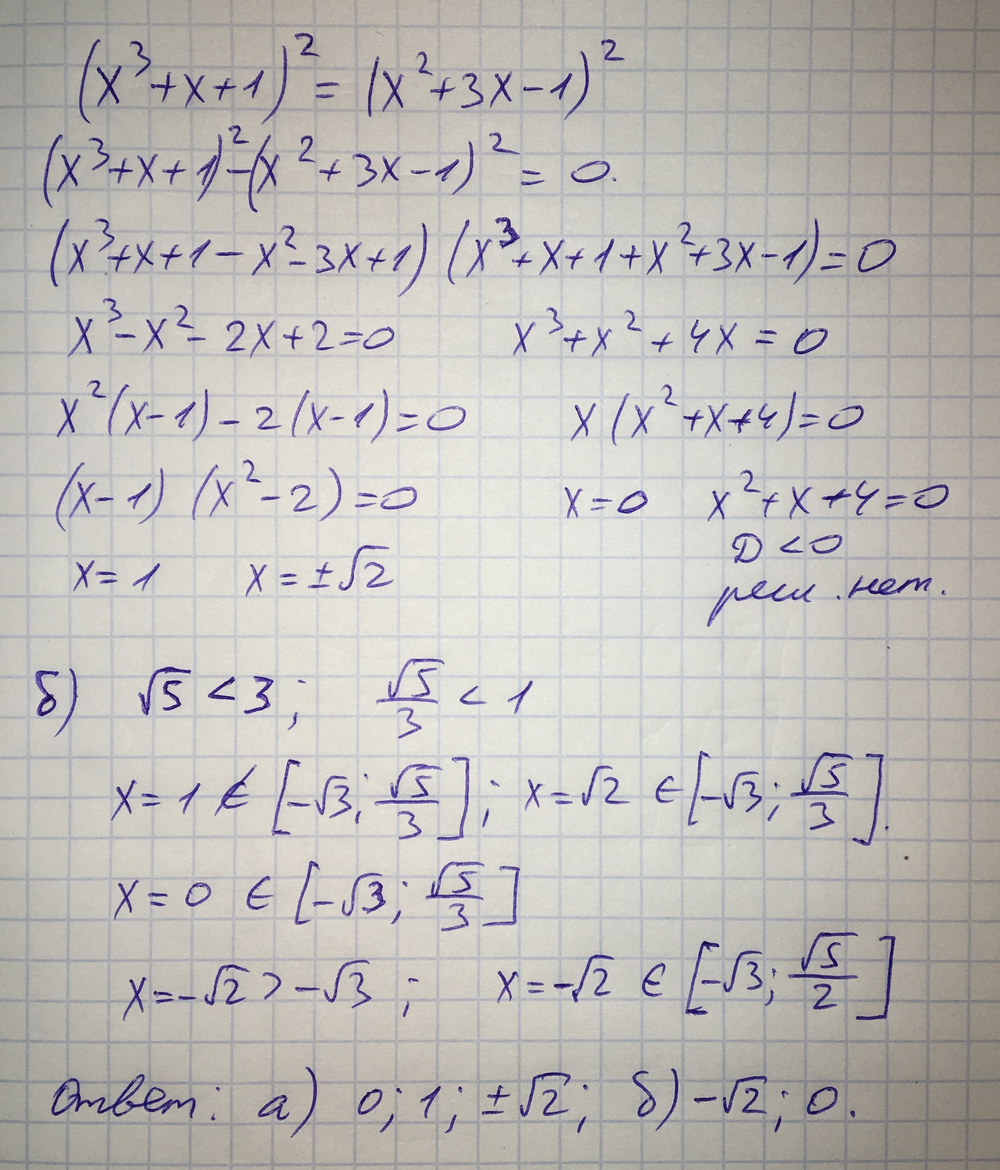 (x³+x+1)² = (x²+3x-1)²
(x³+x+1)²-(x²+3x-1)² = 0.
(x³+x+1-x²-3x+1) (x³+x+1+x²+3x-1)=0
x³-x²-2x+2=0 x³+x²+4x=0
x²(x-1)-2(x-1)=0 x(x²+x+4)=0
(x-1) (x²-2)=0 x=0 x²+x+4=0
D<0
x=1 x=±√2 реш. нет.
б) √5<3; √5/3 < 1
x=1 ∉ [-√3; √5/3]; x=√2 ∈ [-√3; √5/3].
x=0 ∈ [-√3; √5/3]
x=-√2>-√3; x=-√2 ∈ [-√3; √5/2]
Ответ: а) 0; 1; ±√2; б) -√2; 0.